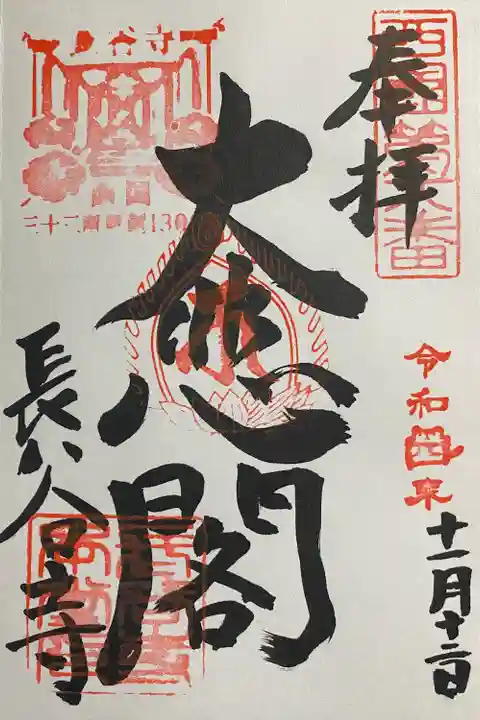 西国第八番
奉拝
令和四年十一月十二日
大悲閣
長谷寺
谷寺
西国
三十三所草創130